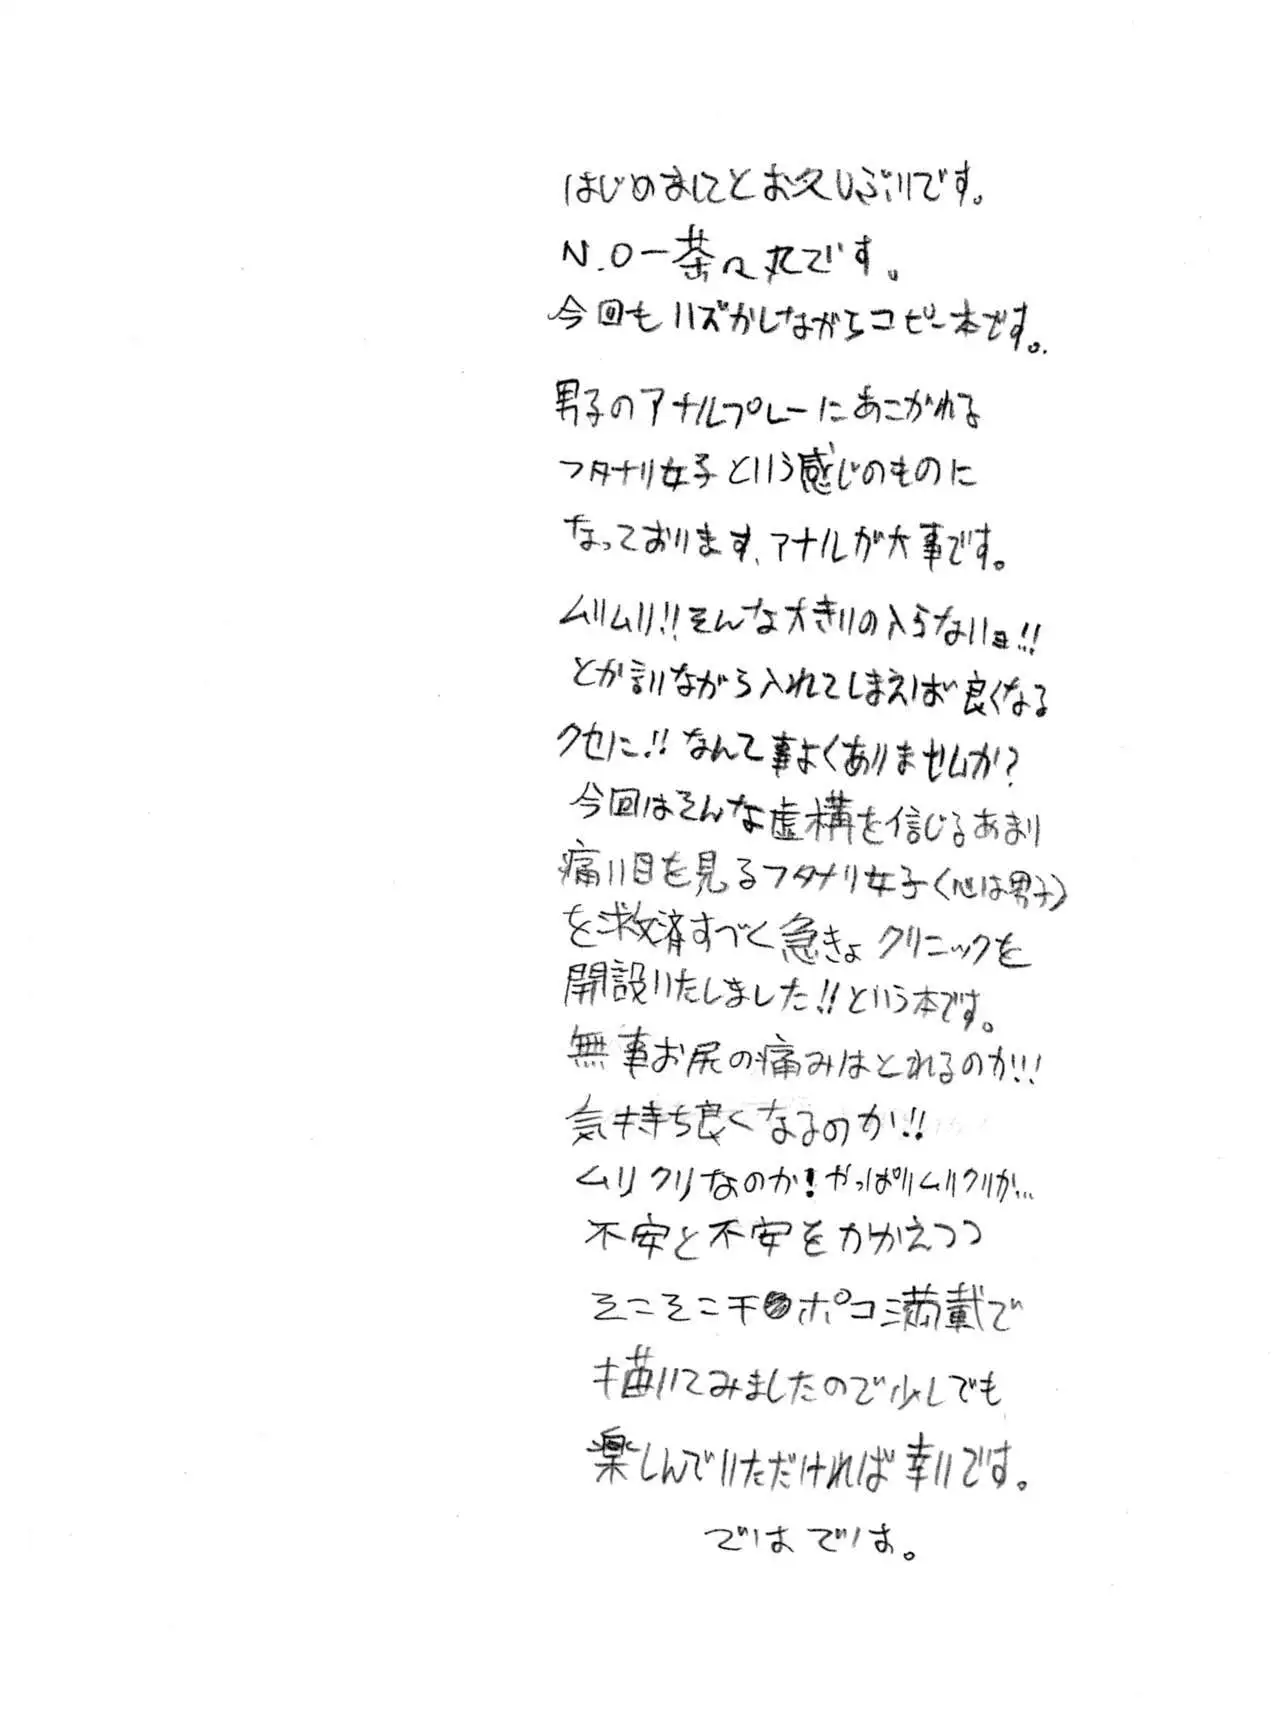 はじめましてとお久しぶりです。
N.O-茶々丸です。
今回もハズかしながらコピー本です。
男子のアナルプレーにあこがれる
フタナリ女子という感じのものに
なっております、アナルが大事です。
ムリムリ!!そんな大きいの入らないヨ!!
とか言いながら入れてしまえば良くなる
クセに!!なんて事よくありませんか?
今回はそんな虚構を信じるあまり
痛い目を見るフタナリ女子(心は男子)
を救済すべく急きょクリニックを
開設いたしました!!という本です。
無事お尻の痛みはとれるのか!!
気持ち良くなるのか!!
ムリクリなのか!やっぱりムリクリか…
不安と不安をかかえつつ
そこそこチ●ポコ満載で
描いてみましたので少しでも
楽しんでいただければ幸いです。
ではでは。